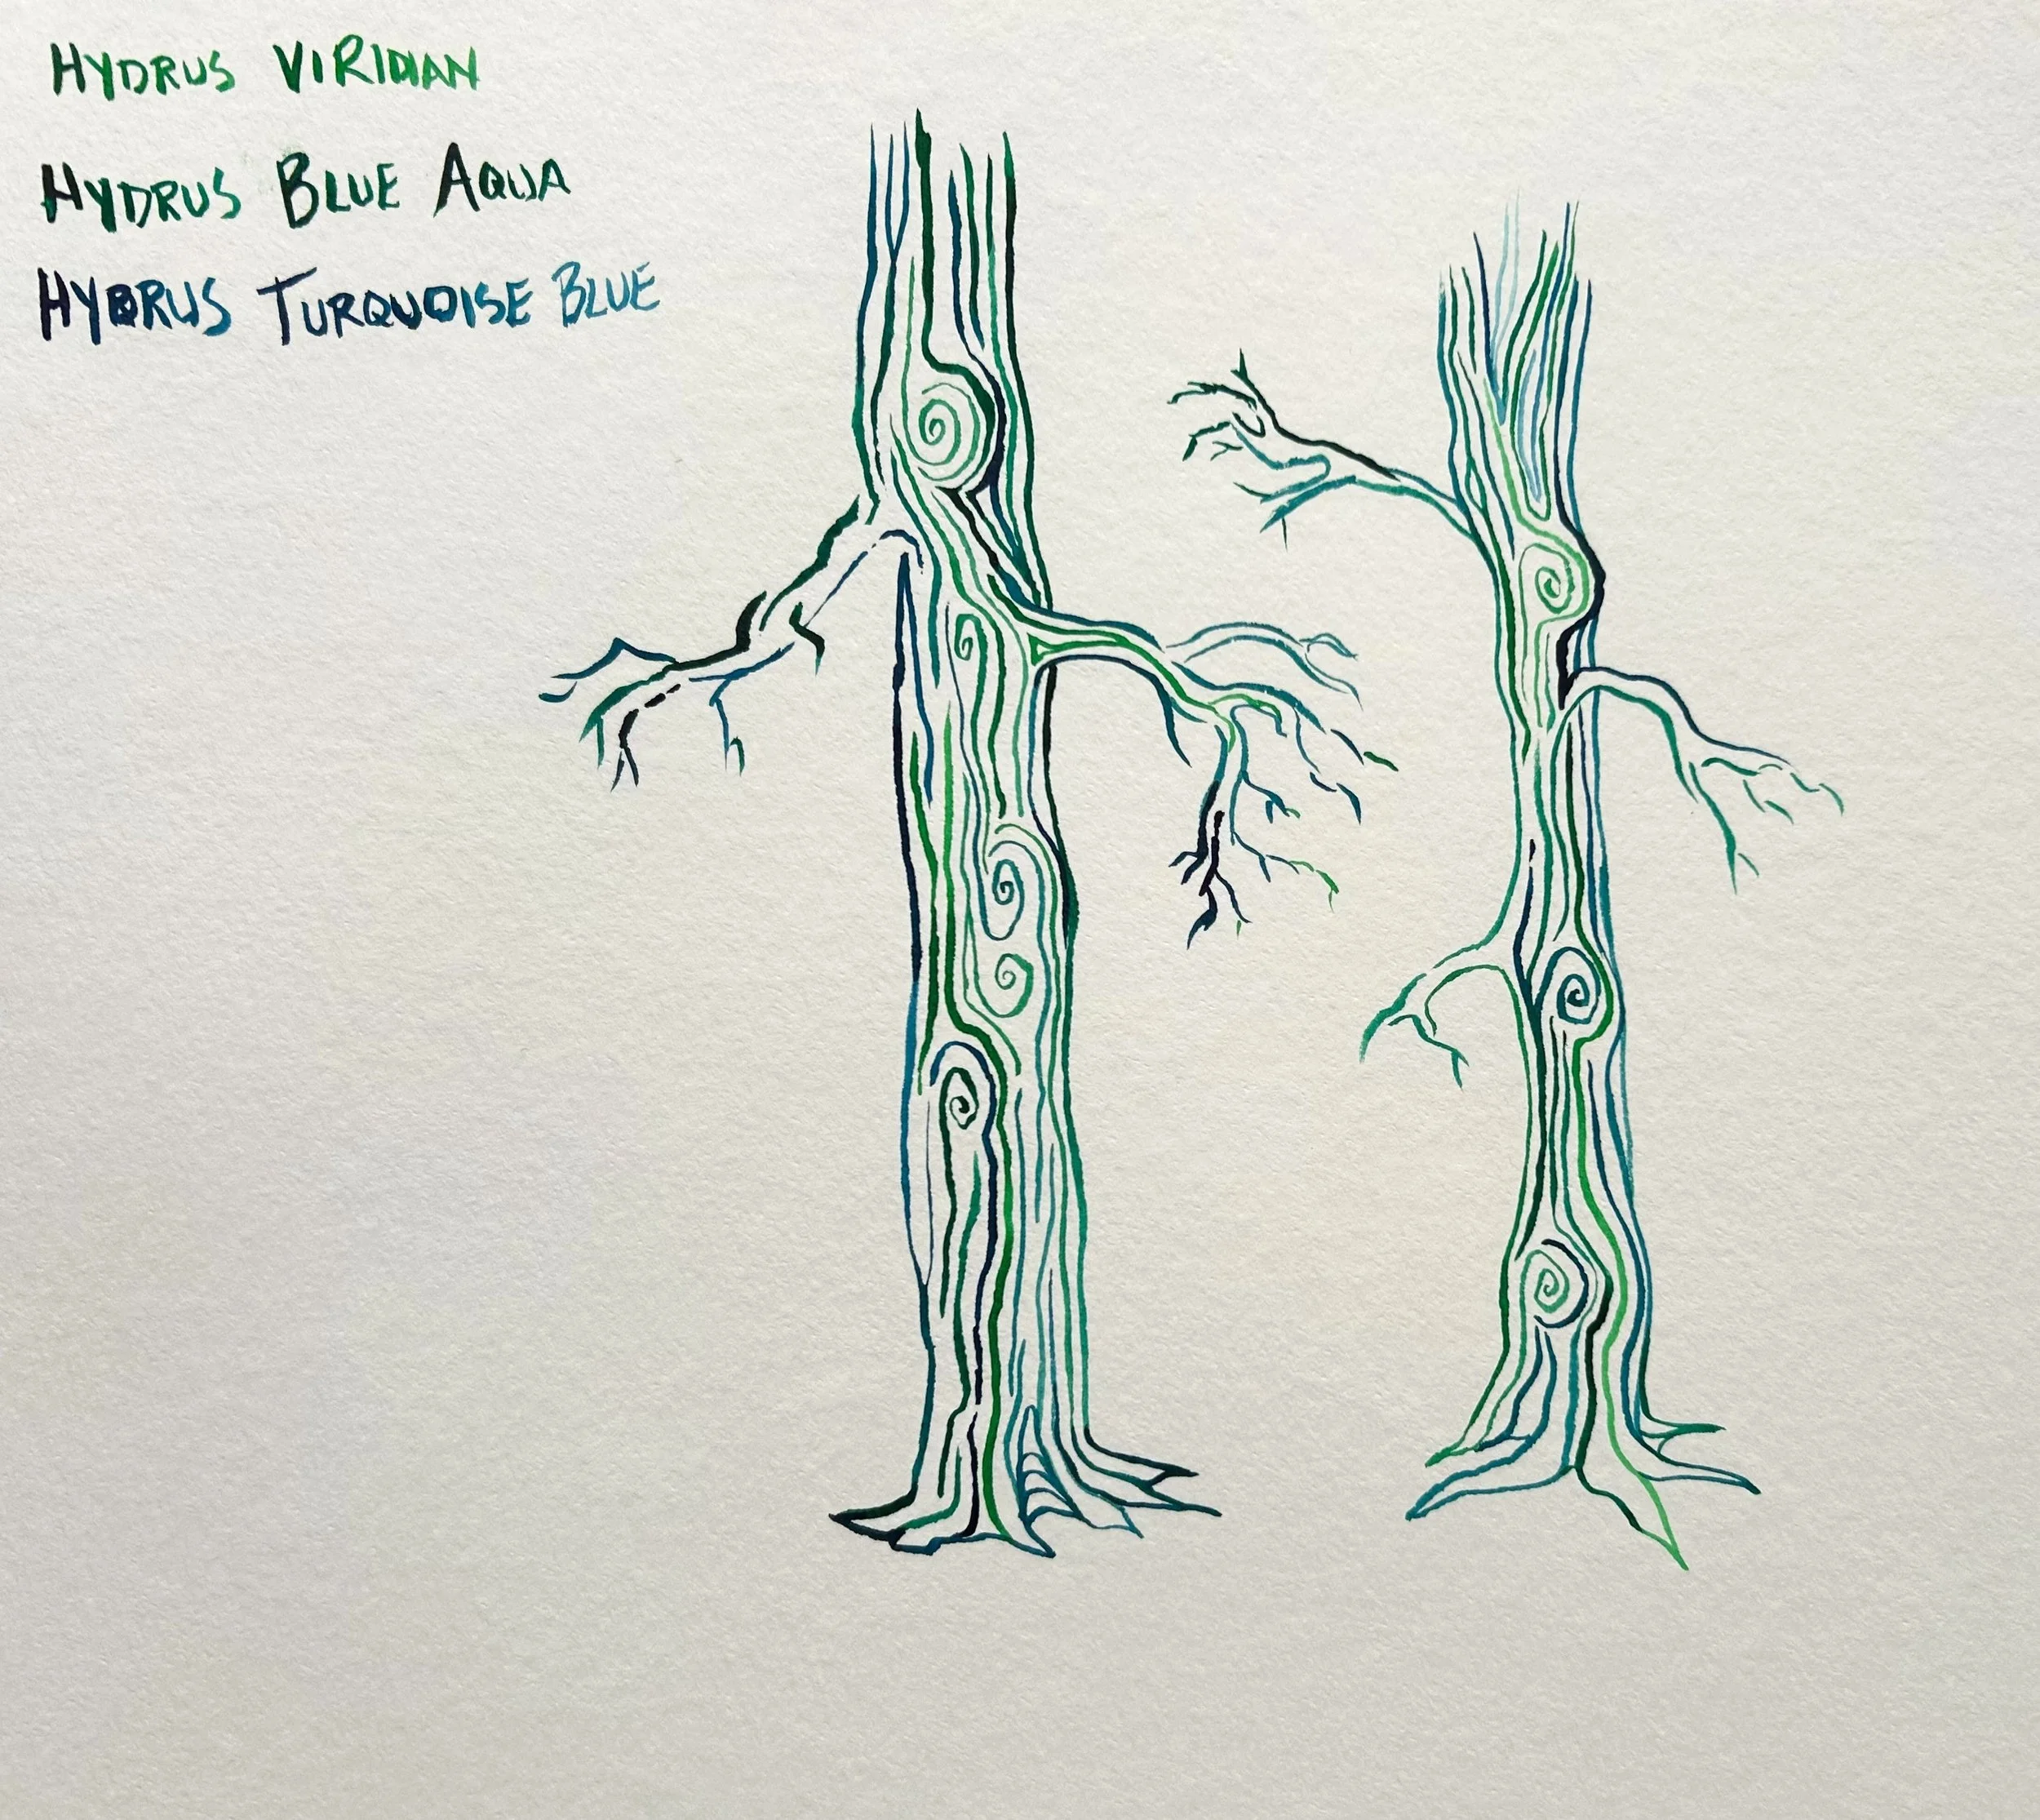 HYDRUS VIRIDIAN
HYDRUS BLUE AQUA
HYDRUS TURQUOISE BLUE